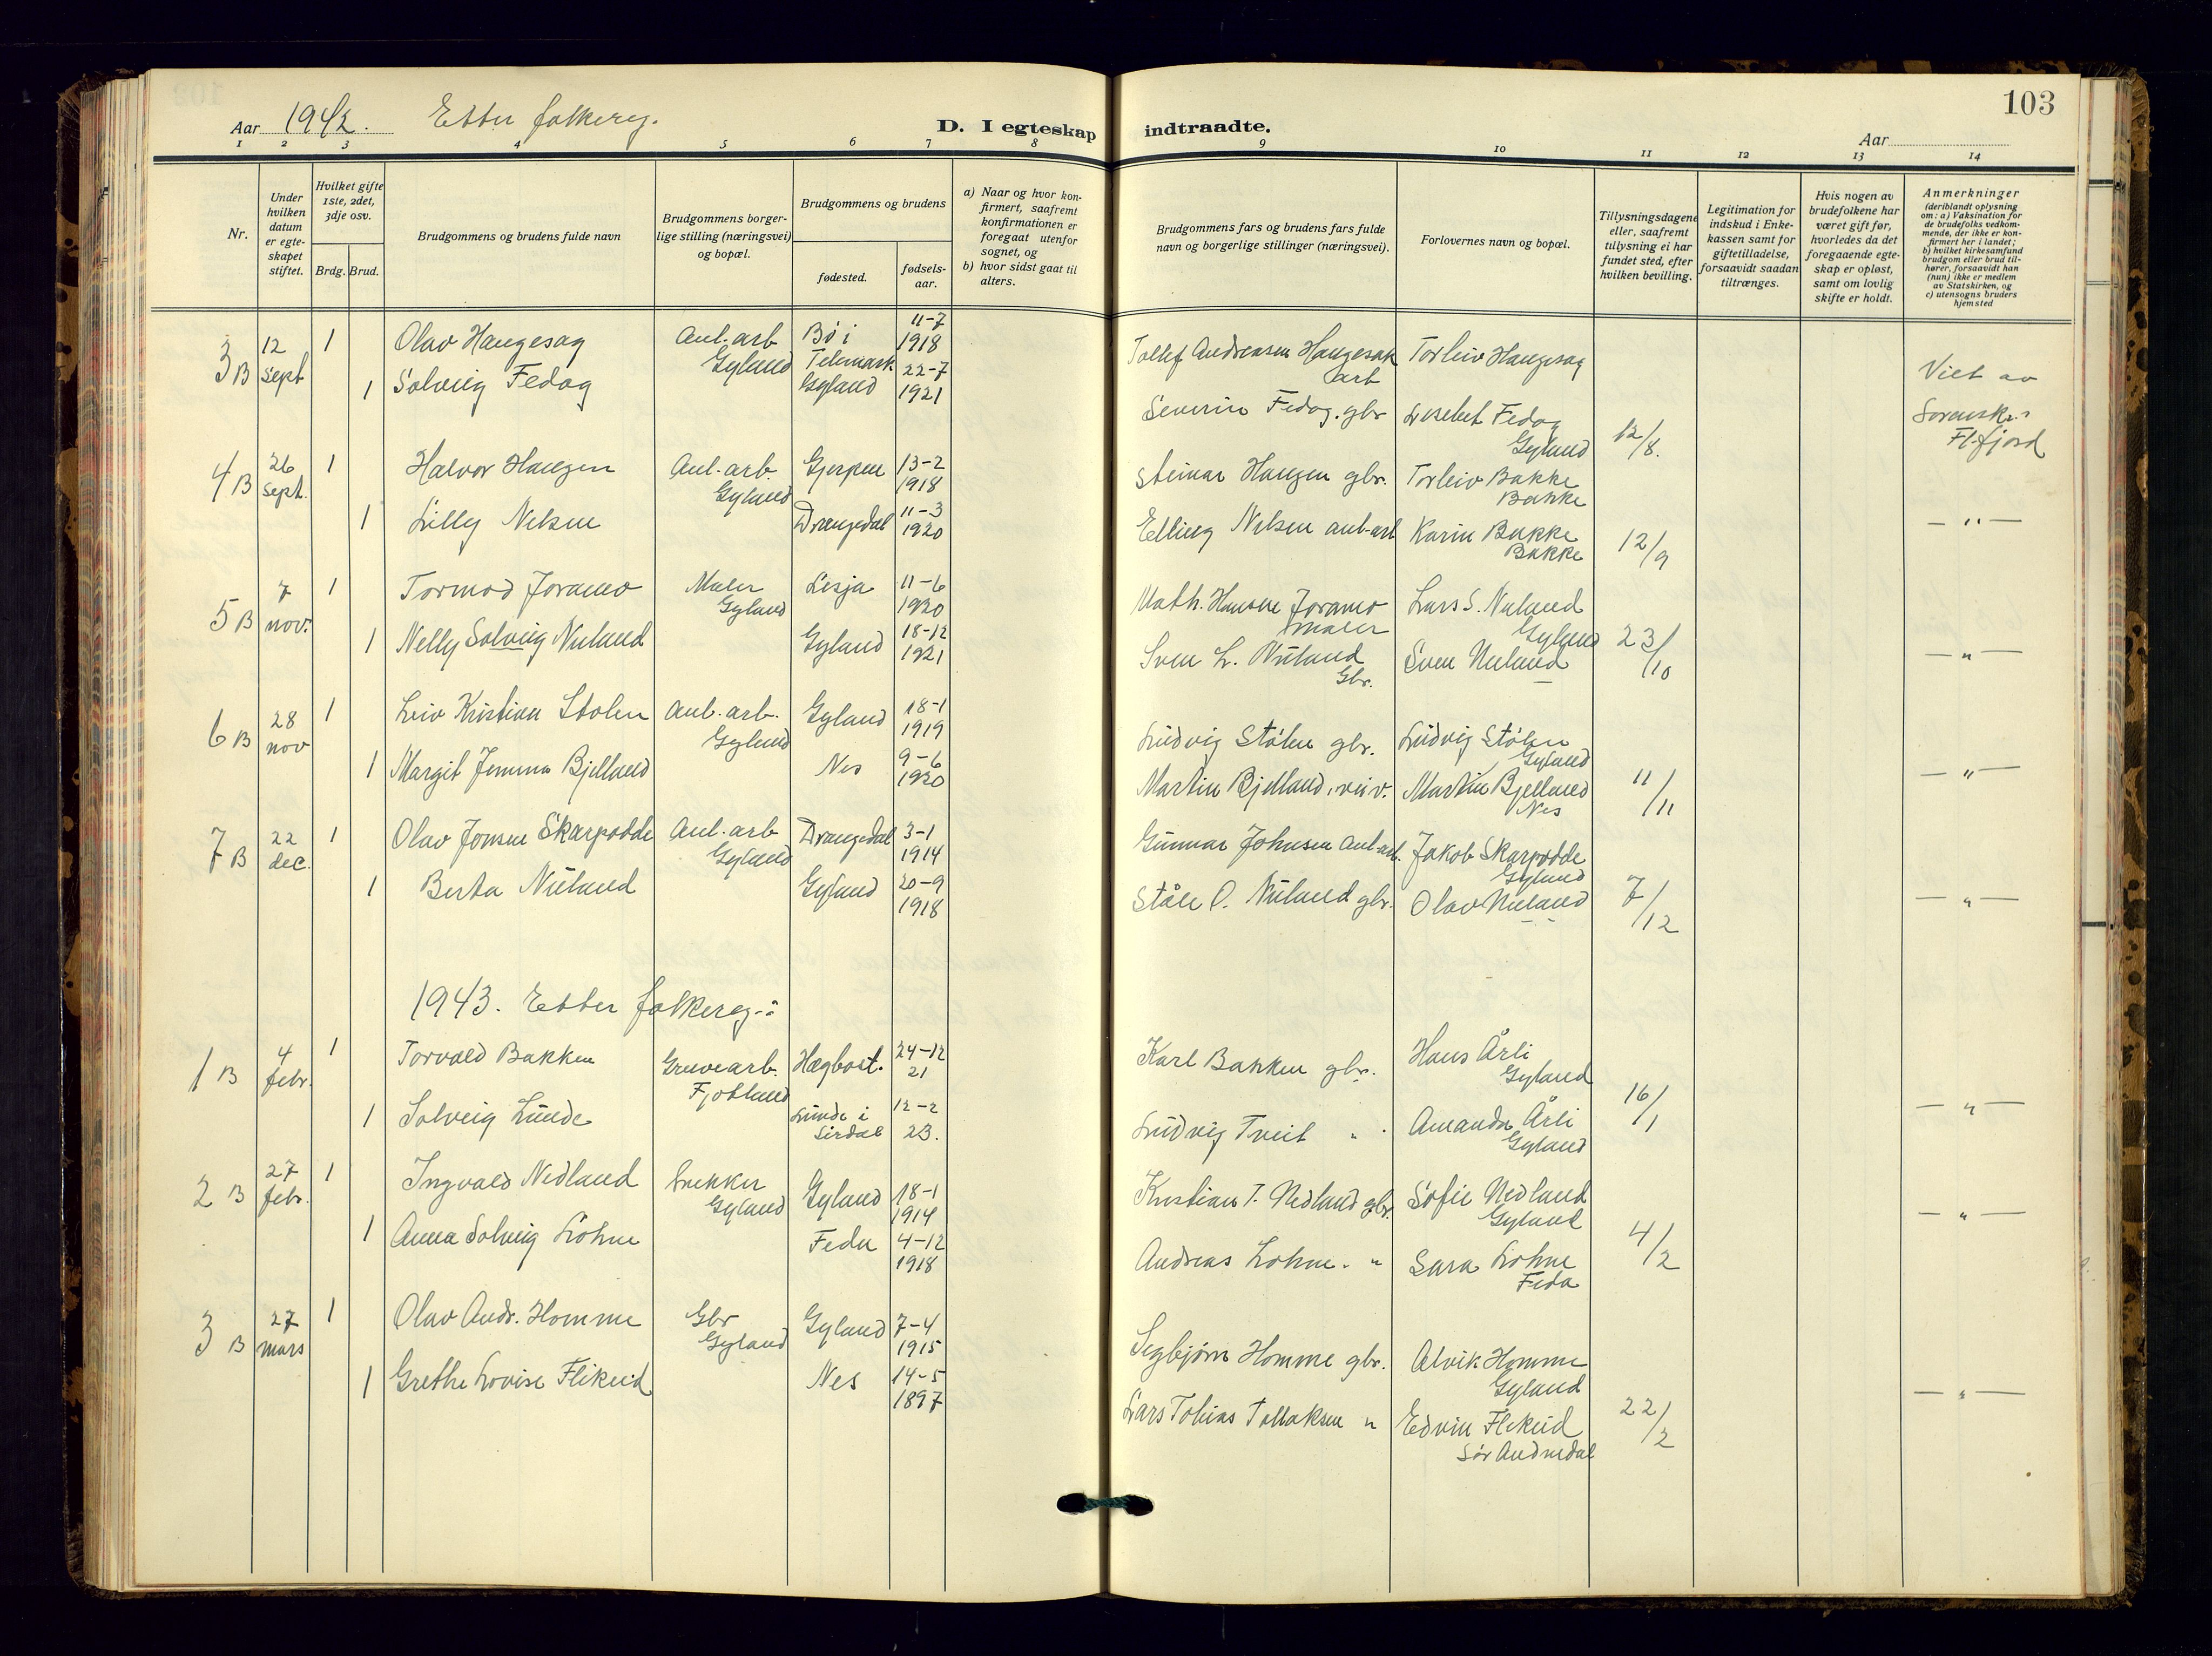 103
Aar 1942. Etter folkereg.
D. I egteskap indtraadte.
Aar
1 2 3 4 5 6 7 8 9 10 11 12 13 14
Nr.
Under hvilken datum er egteskapet stiftet.
Hvilket gifte 1ste, 2det, 3dje osv.
Brdg. Brud.
Brudgommens og brudens fulde navn
Brudgommens borgerlige stilling (næringsvei) og bopæl.
Brudgommens og brudens
fødested.
fødselsaar.
a) Naar og hvor konfirmert, saafremt konfirmationen er foregaat utenfor sognet, og
b) hvor sidst gaat til alters.
Brudgommens fars og brudens fars fulde navn og borgerlige stillinger (næringsvei).
Forlovernes navn og bopæl.
Tillysningsdagene eller, saafremt tillysning ei har fundet sted, efter hvilken bevilling.
Legitimation for indskud i Enkekassen samt for giftetilladelse, forsaavidt saadan tiltrænges.
Hvis nogen av brudefolkene har været gift før, hvorledes da det foregaaende egteskap er opløst, samt om lovlig skifte er holdt.
Anmerkninger
(deriblandt oplysning om: a) Vaksination for de brudefolks vedkommende, der ikke er konfirmert her i landet;
b) hvilket kirkesamfund brudgom eller brud tilhører, forsaavidt han (hun) ikke er medlem av Statskirken, og
c) utensogns bruders hjemsted
3 B 12 Sept 1 Olav Haugesag Anl. arb Gyland Bø i Telemark 11-7 1918 Tollef Andreasen Haugesak arb Torleiv Haugesag
1 Solveig Fedog Gyland 22-7 1921 Severin Fedog. gbr Lisebet Fedog Gyland 12/8. Viet av Sorenskr. i Fl.fjord
4 B 26 Sept. 1 Halvor Haugen Anl. arb. Gyland Gjerpen 13-2 1918 Steinar Haugen gbr. Torleiv Bakke Bakke
1 Lilly Nelsen Drangedal 11-3 1920 Elling Nelsen anl-arb Karin Bakke Bakke 12/9 — " —
5 B 7 nov. 1 Tormod Joramo Maler Gyland Lesja 11-6 1920 Math. Hansen Joramo maler Lars S. Nuland Gyland
1 Nelly Solveig Nuland Gyland 18-12 1921 Sven L. Nuland Gbr. Sven Nuland 23/10 — " —
6 B 28 nov 1 Leiv Kristian Stølen Anl. arb. Gyland Gyland 18-1 1919 Ludvig Stølen gbr. Ludvig Stølen Gyland
1 Margit Jemma Bjelland Nes 9-6 1920 Martin Bjelland, veiv. Martin Bjelland Nes 11/11 — " —
7 B 22 dec. 1 Olav Jonsen Skarpodde Anl. arb Gyland Drangedal 3-1 1914 Gunnar Johnsen Anl-arb. Jakob Skarpodde Gyland
1 Berta Nuland Gyland 20-9 1918 Ståle O. Nuland gbr. Olav Nuland 7/12 — " —
1943. Etter folkereg.:
1 B 4 febr. 1 Torvald Bakken Gruvearb. Fjotland Hægbost. 24-12 21 Karl Bakken gbr. Hans Årli Gyland
1 Solveig Lunde Lunde i Sirdal 12-2 23. Ludvig Tveit " Amanda Årli Gyland 16/1 — " —
2 B 27 febr. 1 Ingvald Nedland Snekker Gyland Gyland 18-1 1914 Kristian T. Nedland gbr. Sofie Nedland Gyland
1 Anna Solveig Lohne Feda 4-12 1918 Andreas Lohne. " Sara Lohne Feda 4/2 — " —
3 B 27 mars 1 Olav Andr. Homme Gbr Gyland Gyland 7-4 1915 Segbjørn Homme gbr. Alvik Homme Gyland
1 Grethe Lovise Flikeid Nes 14-5 1897 Lars Tobias Tallaksen " Edvin Flikeid Sør Audnedal 22/2 — " —